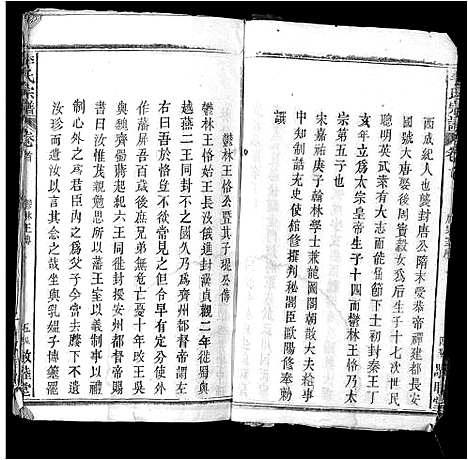 酉成紀人也襲封唐公隋末受恭帝禪建都長安
國號大唐后竇穀女為后生子十七次世民
聰明英武素有大志而能屈節下士初封秦王丁
亥立為太宗皇帝生子十四而鬱林王恪乃太
宗第五子也
宋嘉祐庚子翰林學士兼龍圖閣朝散大夫給事
中知制誥充史舘修撰判秘閣臣歐陽修奉勅
譔
李氏宗譜
卷首
鬱林王傳
五
敦睦堂
鬱林王恪公暨其子琨公傳
鬱林王恪始王長沙俄進封漢貞觀二年徙蜀與
越燕二王同封不之國久乃為齊州都督帝謂左
右曰吾於恪豈不欲常見之但令早有定分使外
作藩屏吾百歲後庶兄弟無危亡憂十年改王吳
與魏齊蜀蔣越紀六王同徙封授安州都督帝賜
書曰汝惟茂親勉思所以藩王室以義制事以禮
制心外之為君臣內之為父子今當去膝下不遺
汝珍而遺汝以言其念之哉坐與乳媼子博簺罷